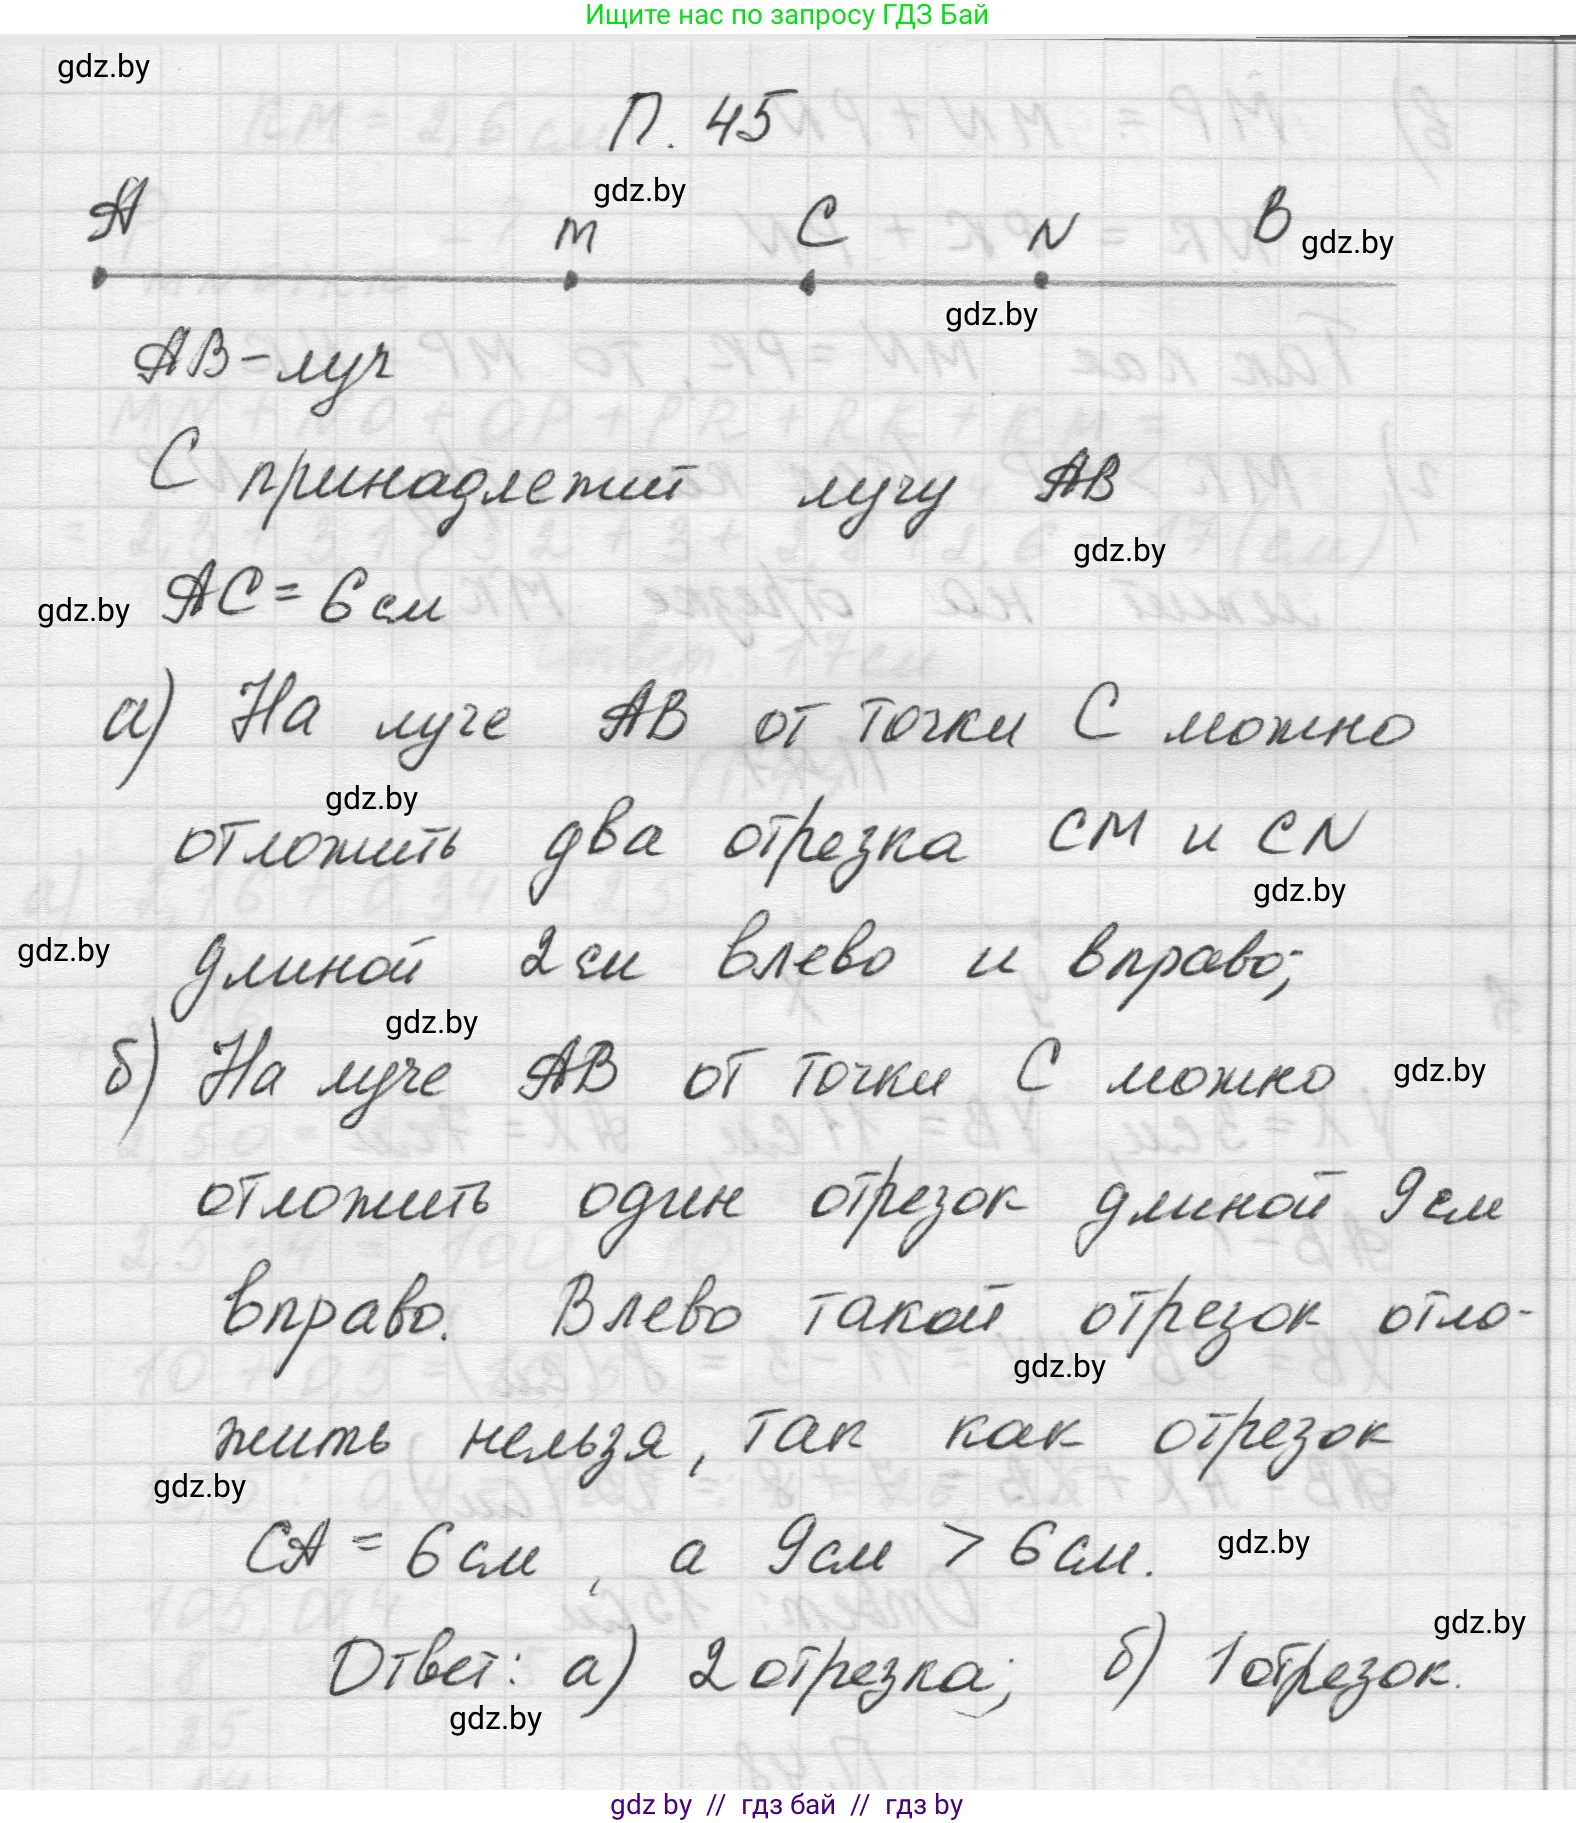 Ищите нас по запросу ГДЗ Бай
gdz.by
П. 45
gdz.by
A M C N B gdz.by
gdz.by
AB-луч
C принадлежит лучу AB
gdz.by
gdz.by AC = 6 см
а) На луче AB от точки C можно
gdz.by
отложить два отрезка CM и CN
gdz.by
gdz.by длиной 2 см влево и вправо;
gdz.by
б) На луче AB от точки C можно gdz.by
отложить один отрезок длиной 9 см
вправо. Влево такой отрезок отло-
gdz.by
жить нельзя, так как отрезок
gdz.by
CA = 6 см, а 9 см > 6 см. gdz.by
gdz.by
Ответ: а) 2 отрезка; б) 1 отрезок.
gdz.by
gdz by // гдз бай // гдз by